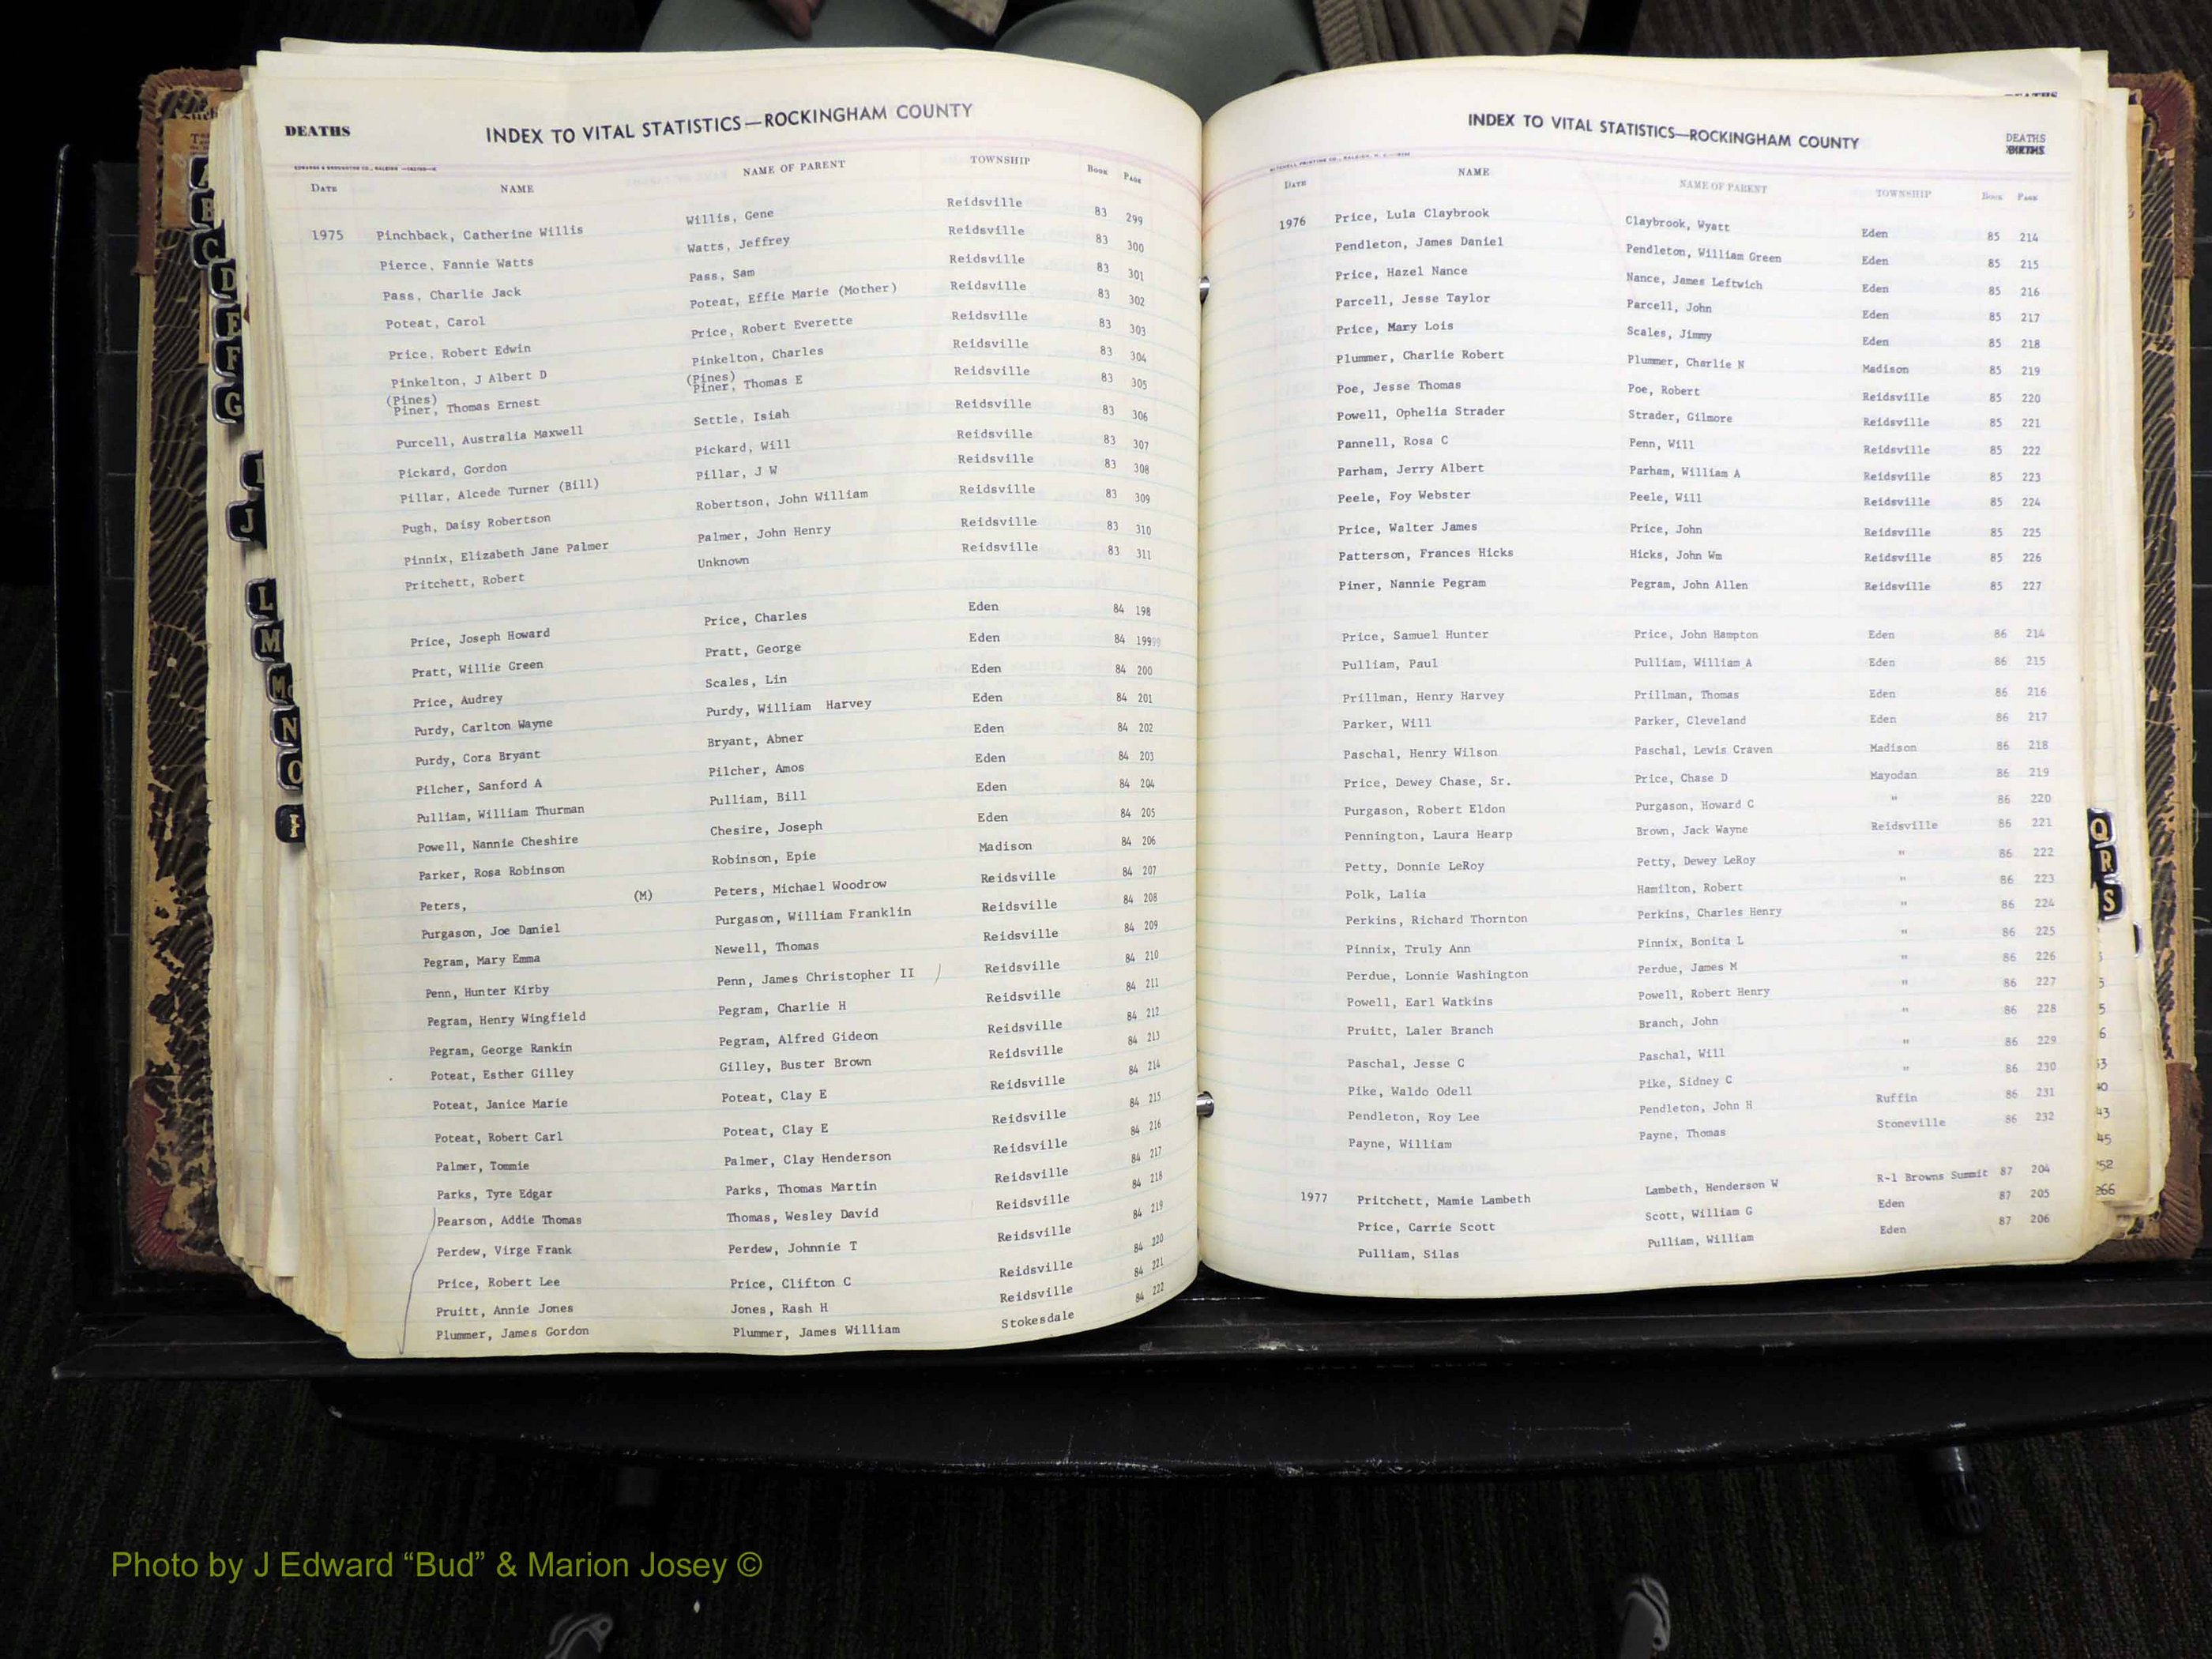 DEATHS
INDEX TO VITAL STATISTICS—ROCKINGHAM COUNTY
DATE NAME NAME OF PARENT TOWNSHIP BOOK PAGE
1975 Pinchback, Catherine Willis Willis, Gene Reidsville 83 299
Pierce, Fannie Watts Watts, Jeffrey Reidsville 83 300
Pass, Charlie Jack Pass, Sam Reidsville 83 301
Poteat, Carol Poteat, Effie Marie (Mother) Reidsville 83 302
Price, Robert Edwin Price, Robert Everette Reidsville 83 303
Pinkelton, J Albert D Pinkelton, Charles Reidsville 83 304
(Pines) (Pines)
Piner, Thomas Ernest Piner, Thomas E Reidsville 83 305
Purcell, Australia Maxwell Settle, Isiah Reidsville 83 306
Pickard, Gordon Pickard, Will Reidsville 83 307
Pillar, Alcede Turner (Bill) Pillar, J W Reidsville 83 308
Pugh, Daisy Robertson Robertson, John William Reidsville 83 309
Pinnix, Elizabeth Jane Palmer Palmer, John Henry Reidsville 83 310
Pritchett, Robert Unknown Reidsville 83 311
Price, Joseph Howard Price, Charles Eden 84 198
Pratt, Willie Green Pratt, George Eden 84 199
Price, Audrey Scales, Lin Eden 84 200
Purdy, Carlton Wayne Purdy, William Harvey Eden 84 201
Purdy, Cora Bryant Bryant, Abner Eden 84 202
Pilcher, Sanford A Pilcher, Amos Eden 84 203
Pulliam, William Thurman Pulliam, Bill Eden 84 204
Powell, Nannie Cheshire Chesire, Joseph Eden 84 205
Parker, Rosa Robinson Robinson, Epie Madison 84 206
Peters, (M) Peters, Michael Woodrow Reidsville 84 207
Purgason, Joe Daniel Purgason, William Franklin Reidsville 84 208
Pegram, Mary Emma Newell, Thomas Reidsville 84 209
Penn, Hunter Kirby Penn, James Christopher II Reidsville 84 210
Pegram, Henry Wingfield Pegram, Charlie H Reidsville 84 211
Pegram, George Rankin Pegram, Alfred Gideon Reidsville 84 212
Poteat, Esther Gilley Gilley, Buster Brown Reidsville 84 213
Poteat, Janice Marie Poteat, Clay E Reidsville 84 214
Poteat, Robert Carl Poteat, Clay E Reidsville 84 215
Palmer, Tommie Palmer, Clay Henderson Reidsville 84 216
Parks, Tyre Edgar Parks, Thomas Martin Reidsville 84 217
Pearson, Addie Thomas Thomas, Wesley David Reidsville 84 218
Perdew, Virge Frank Perdew, Johnnie T Reidsville 84 219
Price, Robert Lee Price, Clifton C Reidsville 84 220
Pruitt, Annie Jones Jones, Rash H Reidsville 84 221
Plummer, James Gordon Plummer, James William Stokesdale 84 222
INDEX TO VITAL STATISTICS—ROCKINGHAM COUNTY
DEATHS
BIRTHS
DATE NAME NAME OF PARENT TOWNSHIP BOOK PAGE
1976 Price, Lula Claybrook Claybrook, Wyatt Eden 85 214
Pendleton, James Daniel Pendleton, William Green Eden 85 215
Price, Hazel Nance Nance, James Leftwich Eden 85 216
Parcell, Jesse Taylor Parcell, John Eden 85 217
Price, Mary Lois Scales, Jimmy Eden 85 218
Plummer, Charlie Robert Plummer, Charlie N Madison 85 219
Poe, Jesse Thomas Poe, Robert Reidsville 85 220
Powell, Ophelia Strader Strader, Gilmore Reidsville 85 221
Pannell, Rosa C Penn, Will Reidsville 85 222
Parham, Jerry Albert Parham, William A Reidsville 85 223
Peele, Foy Webster Peele, Will Reidsville 85 224
Price, Walter James Price, John Reidsville 85 225
Patterson, Frances Hicks Hicks, John Wm Reidsville 85 226
Piner, Nannie Pegram Pegram, John Allen Reidsville 85 227
Price, Samuel Hunter Price, John Hampton Eden 86 214
Pulliam, Paul Pulliam, William A Eden 86 215
Prillman, Henry Harvey Prillman, Thomas Eden 86 216
Parker, Will Parker, Cleveland Eden 86 217
Paschal, Henry Wilson Paschal, Lewis Craven Madison 86 218
Price, Dewey Chase, Sr. Price, Chase D Mayodan 86 219
Purgason, Robert Eldon Purgason, Howard C " 86 220
Pennington, Laura Hearp Brown, Jack Wayne Reidsville 86 221
Petty, Donnie LeRoy Petty, Dewey LeRoy " 86 222
Polk, Lalia Hamilton, Robert " 86 223
Perkins, Richard Thornton Perkins, Charles Henry " 86 224
Pinnix, Truly Ann Pinnix, Bonita L " 86 225
Perdue, Lonnie Washington Perdue, James M " 86 226
Powell, Earl Watkins Powell, Robert Henry " 86 227
Pruitt, Laler Branch Branch, John " 86 228
Paschal, Jesse C Paschal, Will " 86 229
Pike, Waldo Odell Pike, Sidney C " 86 230
Pendleton, Roy Lee Pendleton, John H Ruffin 86 231
Payne, William Payne, Thomas Stoneville 86 232
1977 Pritchett, Mamie Lambeth Lambeth, Henderson W R-1 Browns Summit 87 204
Price, Carrie Scott Scott, William G Eden 87 205
Pulliam, Silas Pulliam, William Eden 87 206
D
E
F
G
I
J
L
M
Mc
N
O
Q
R
S
Photo by J Edward “Bud” & Marion Josey ©